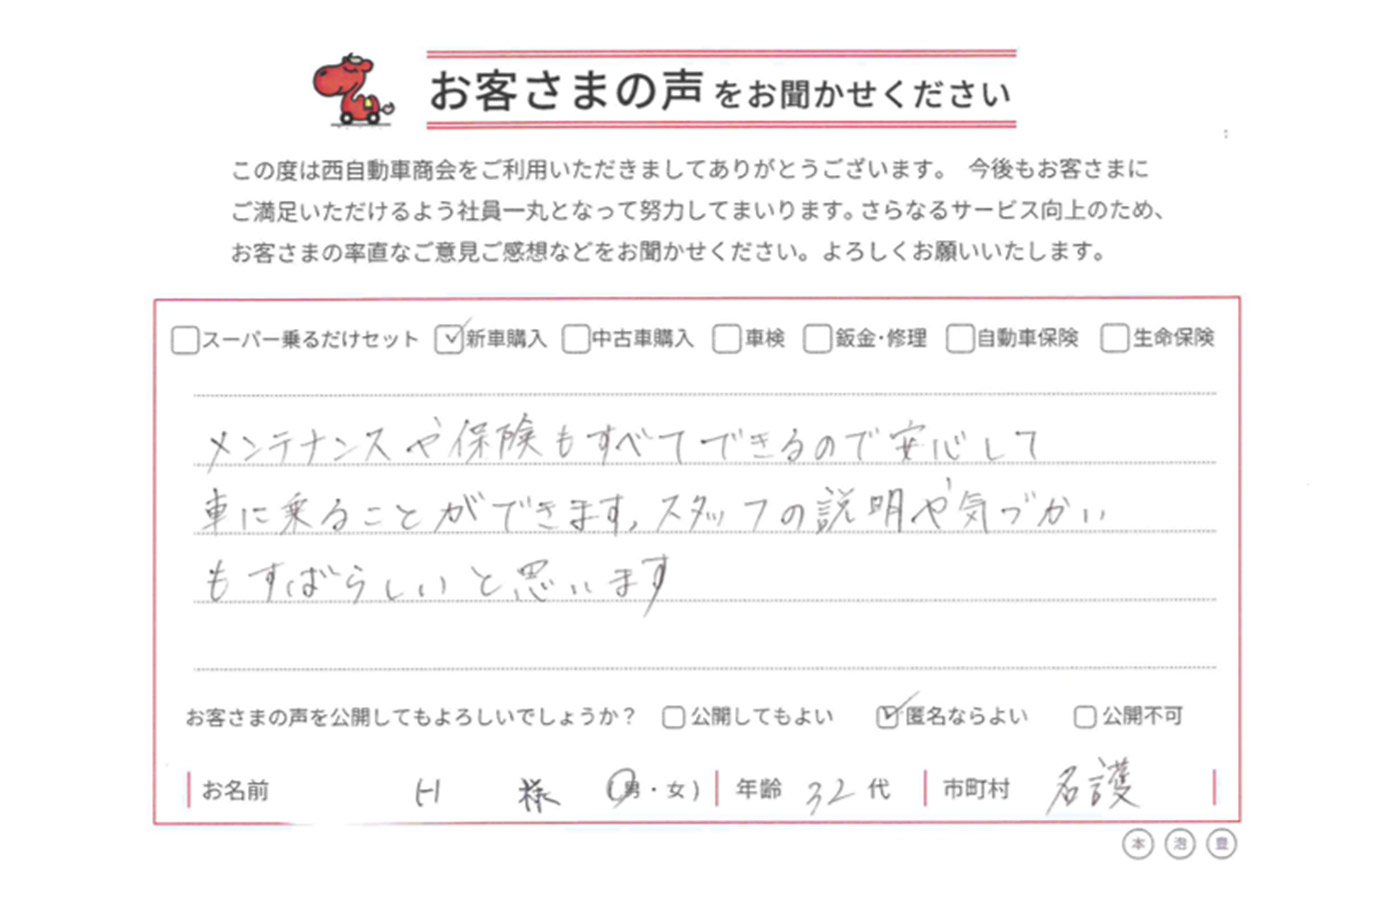 お客さまの声をお聞かせください
この度は西自動車商会をご利用いただきましてありがとうございます。 今後もお客さまに
ご満足いただけるよう社員一丸となって努力してまいります。さらなるサービス向上のため、
お客さまの率直なご意見ご感想などをお聞かせください。よろしくお願いいたします。
スーパー乗るだけセット 新車購入 中古車購入 車検 鈑金・修理 自動車保険 生命保険
メンテナンスや保険もすべてできるので安心して
車に乗ることができます。スタッフの説明や気づかい
もすばらしいと思います
お客さまの声を公開してもよろしいでしょうか？ 公開してもよい 匿名ならよい 公開不可
お名前 H 様 (男・女) 年齢 32代 市町村 名護
本 泡 豊